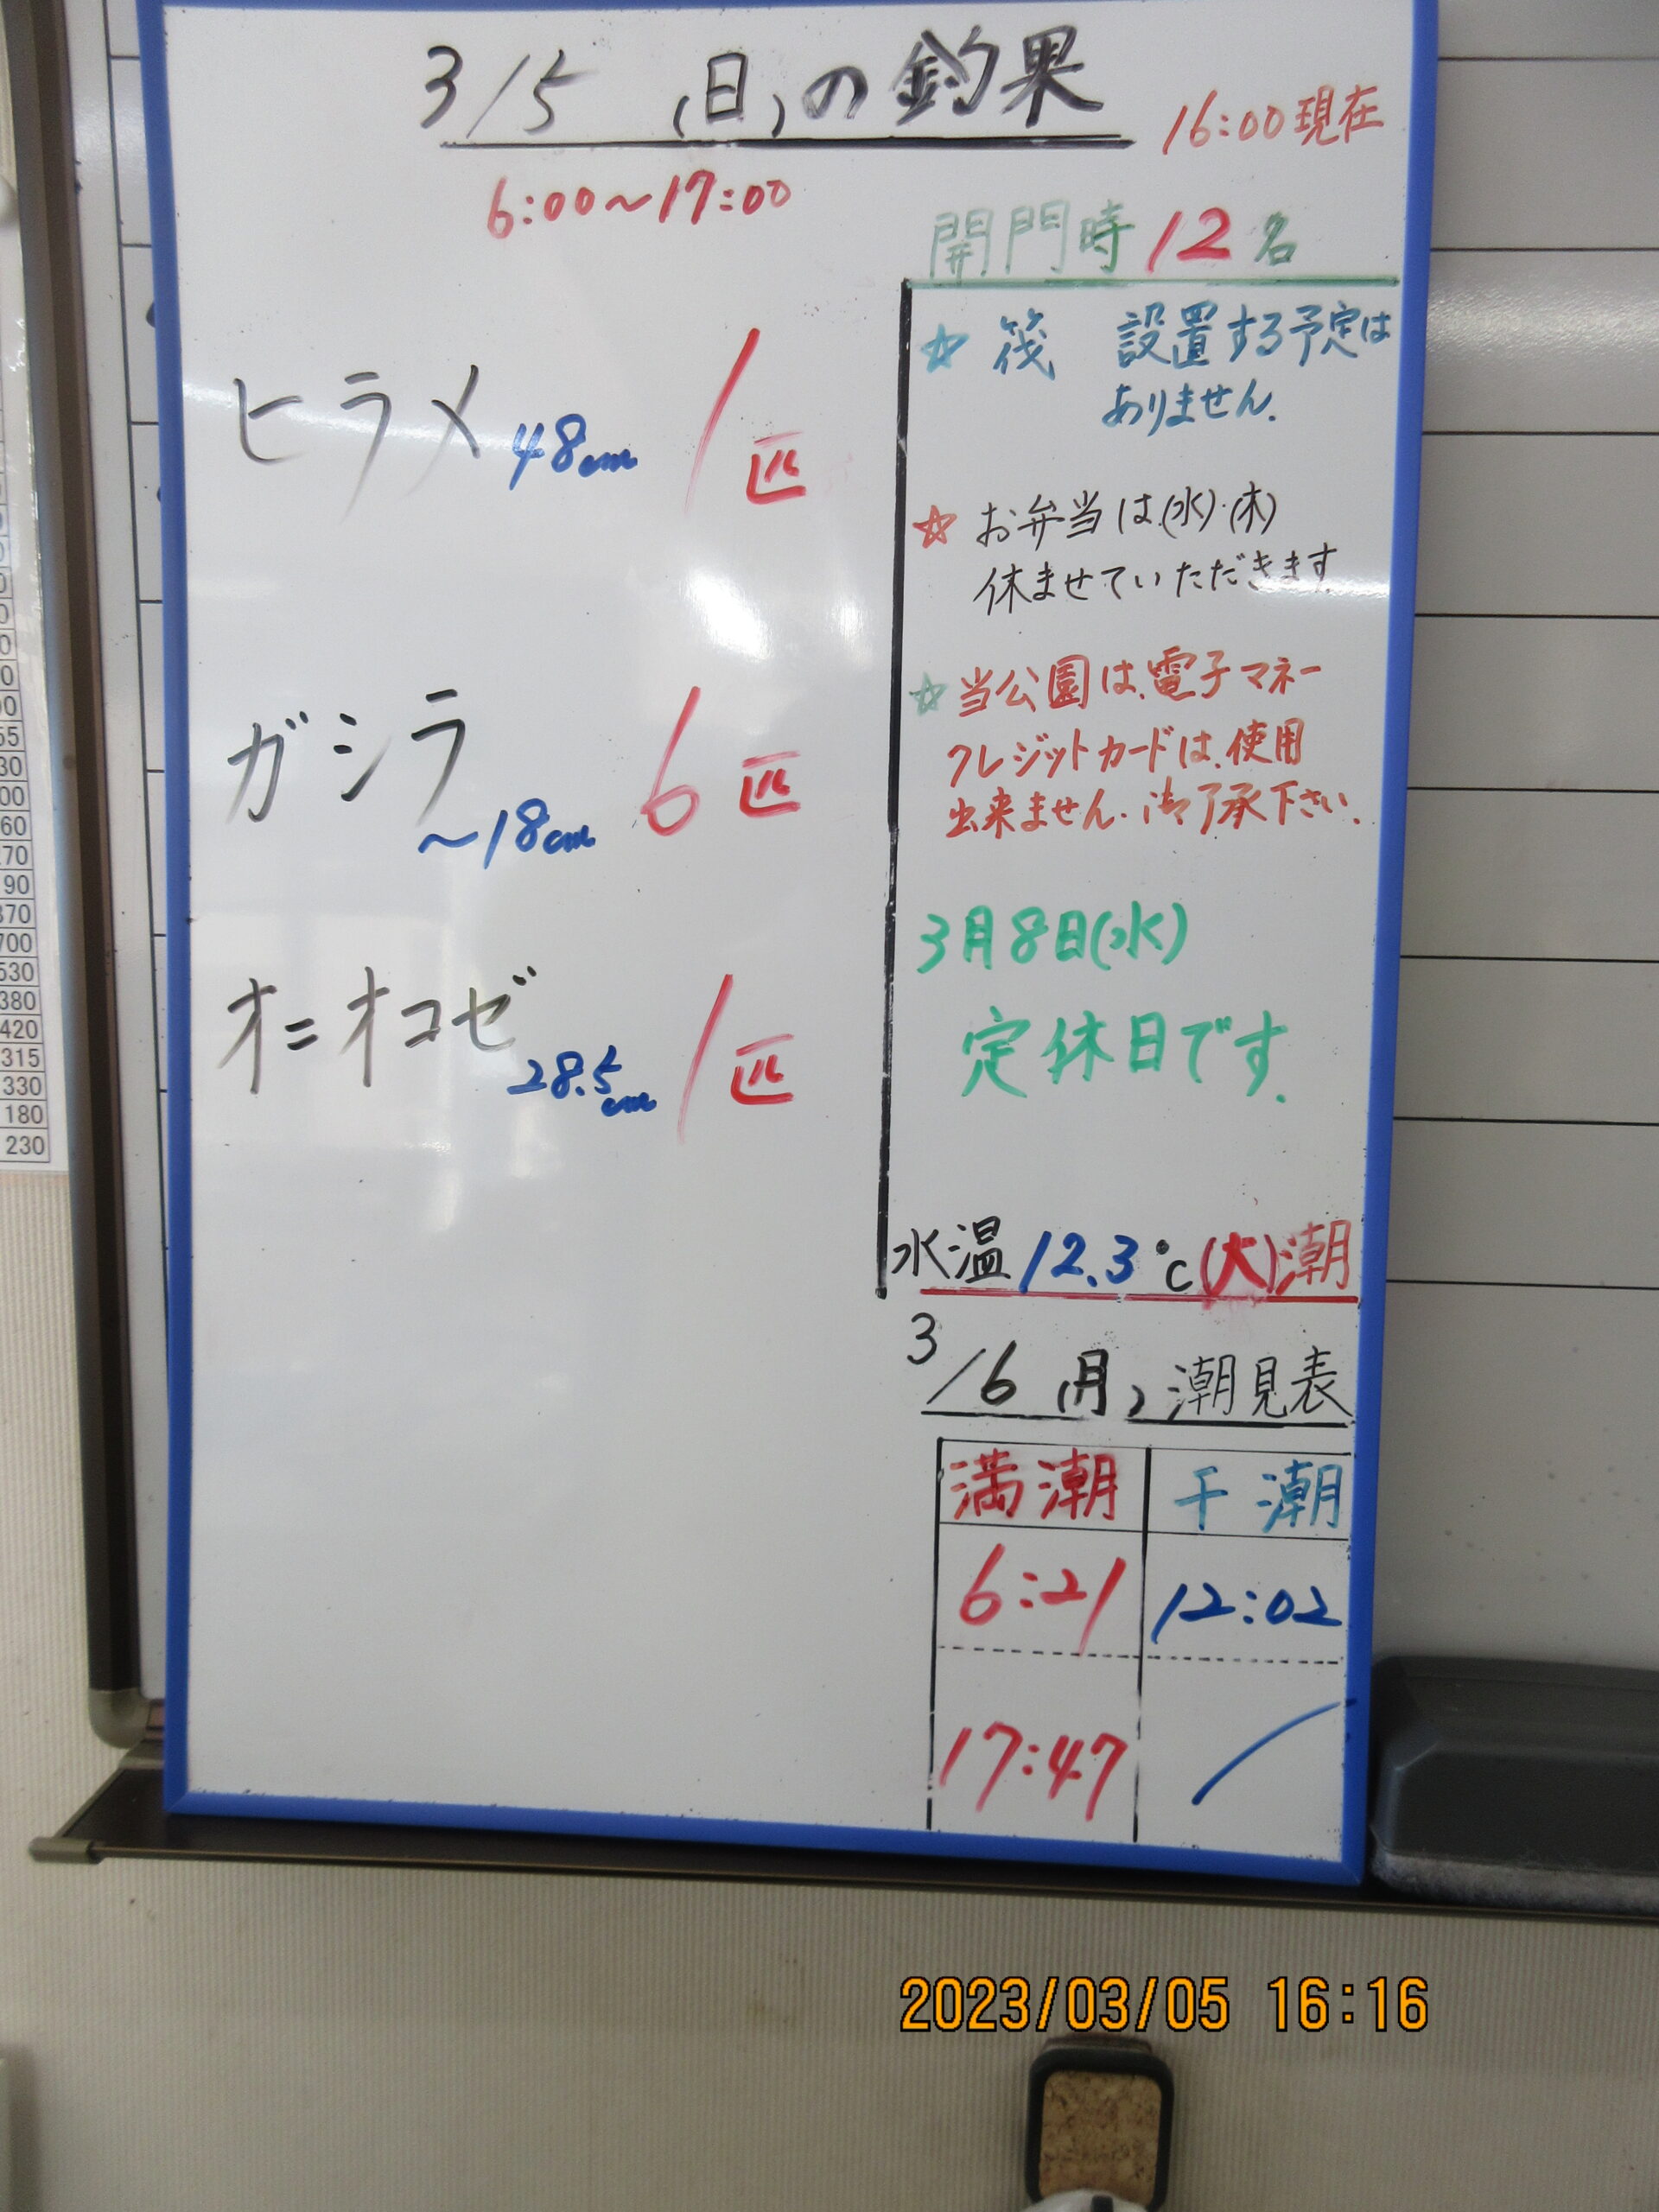 3/5 (日)の釣果
16:00現在
6:00～17:00
開門時 12名
ヒラメ 48cm 1匹
ガシラ ～18cm 6匹
オニオコゼ 28.5cm 1匹
☆ 筏 設置する予定は
ありません.
☆ お弁当は(水)・(木)
休ませていただきます.
☆ 当公園は、電子マネー
クレジットカードは、使用
出来ません. 御了承下さい.
3月8日(水)
定休日です.
水温 12.3℃ (大)潮
3/6 (月) 潮見表
満潮 干潮
6:21 12:02
17:47 /
55
30
00
60
270
90
370
700
530
380
420
315
330
180
230
2023/03/05 16:16